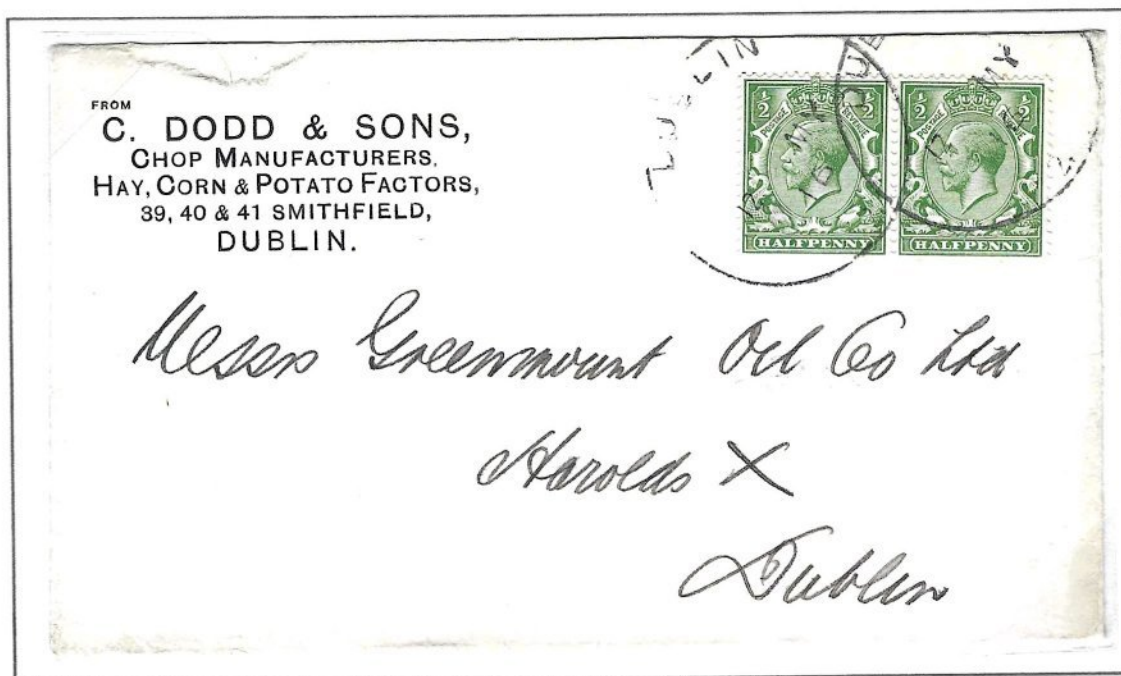 FROM
C. DODD & SONS,
CHOP MANUFACTURERS.
HAY, CORN & POTATO FACTORS,
39, 40 & 41 SMITHFIELD,
DUBLIN.
½ ½
POSTAGE REVENUE
HALFPENNY
½ ½
POSTAGE REVENUE
HALFPENNY
12 MY 16
12 MY
Messrs Greenmount Oil Co Ltd
Harolds X
Dublin